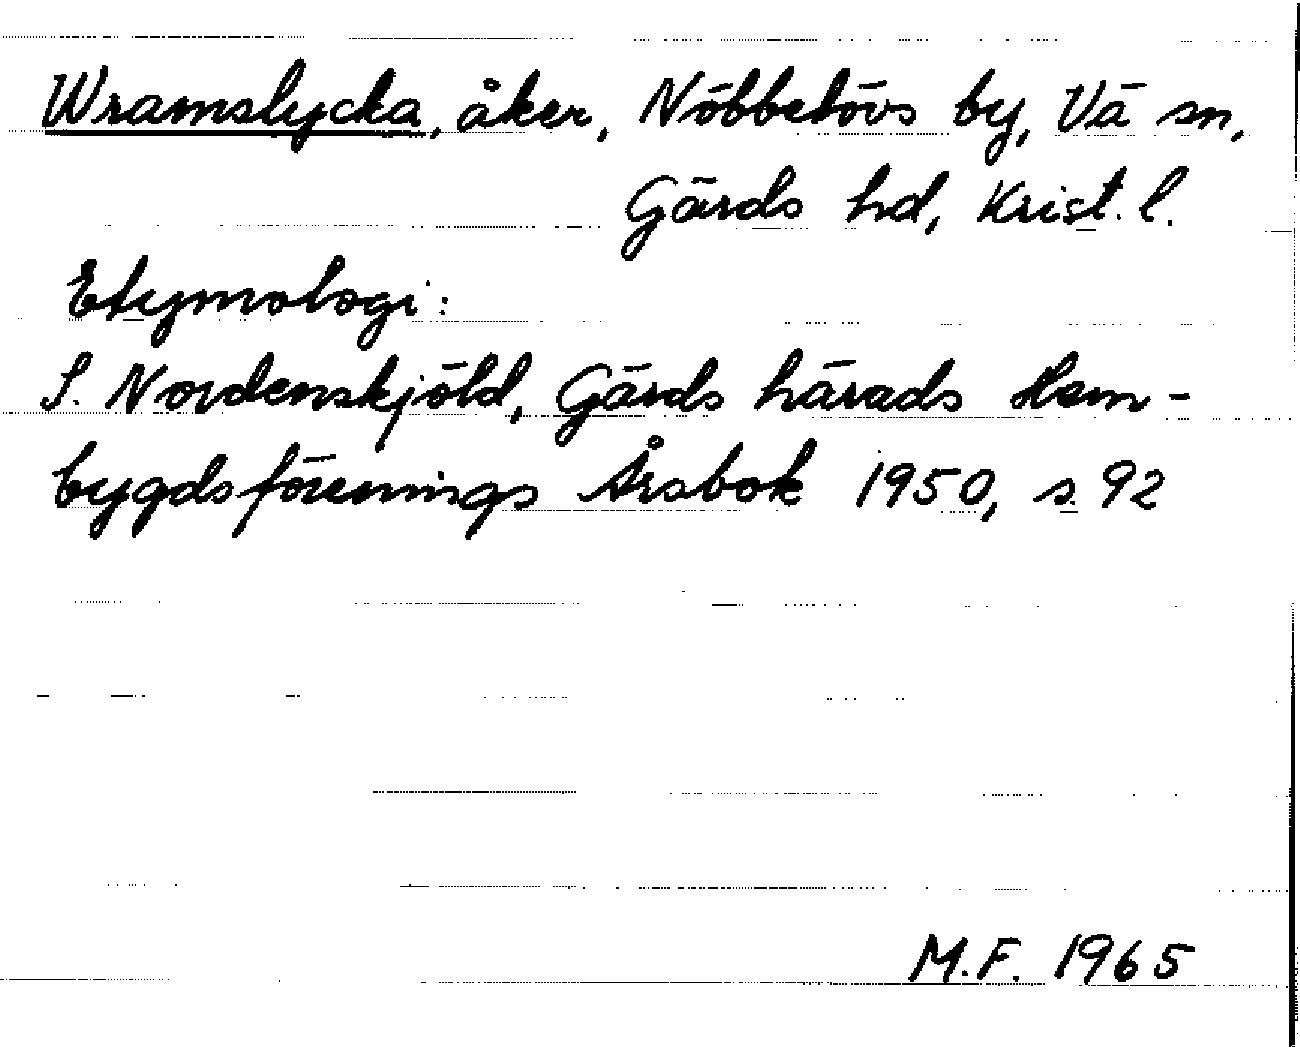 Wramslycka, åker, Nöbbelövs by, Vä sn,
Gärds hd, Krist. l.
Etymologi:
S. Nordenskjöld, Gärds härads Hem-
bygdsförenings Årsbok 1950, s. 92
M.F. 1965